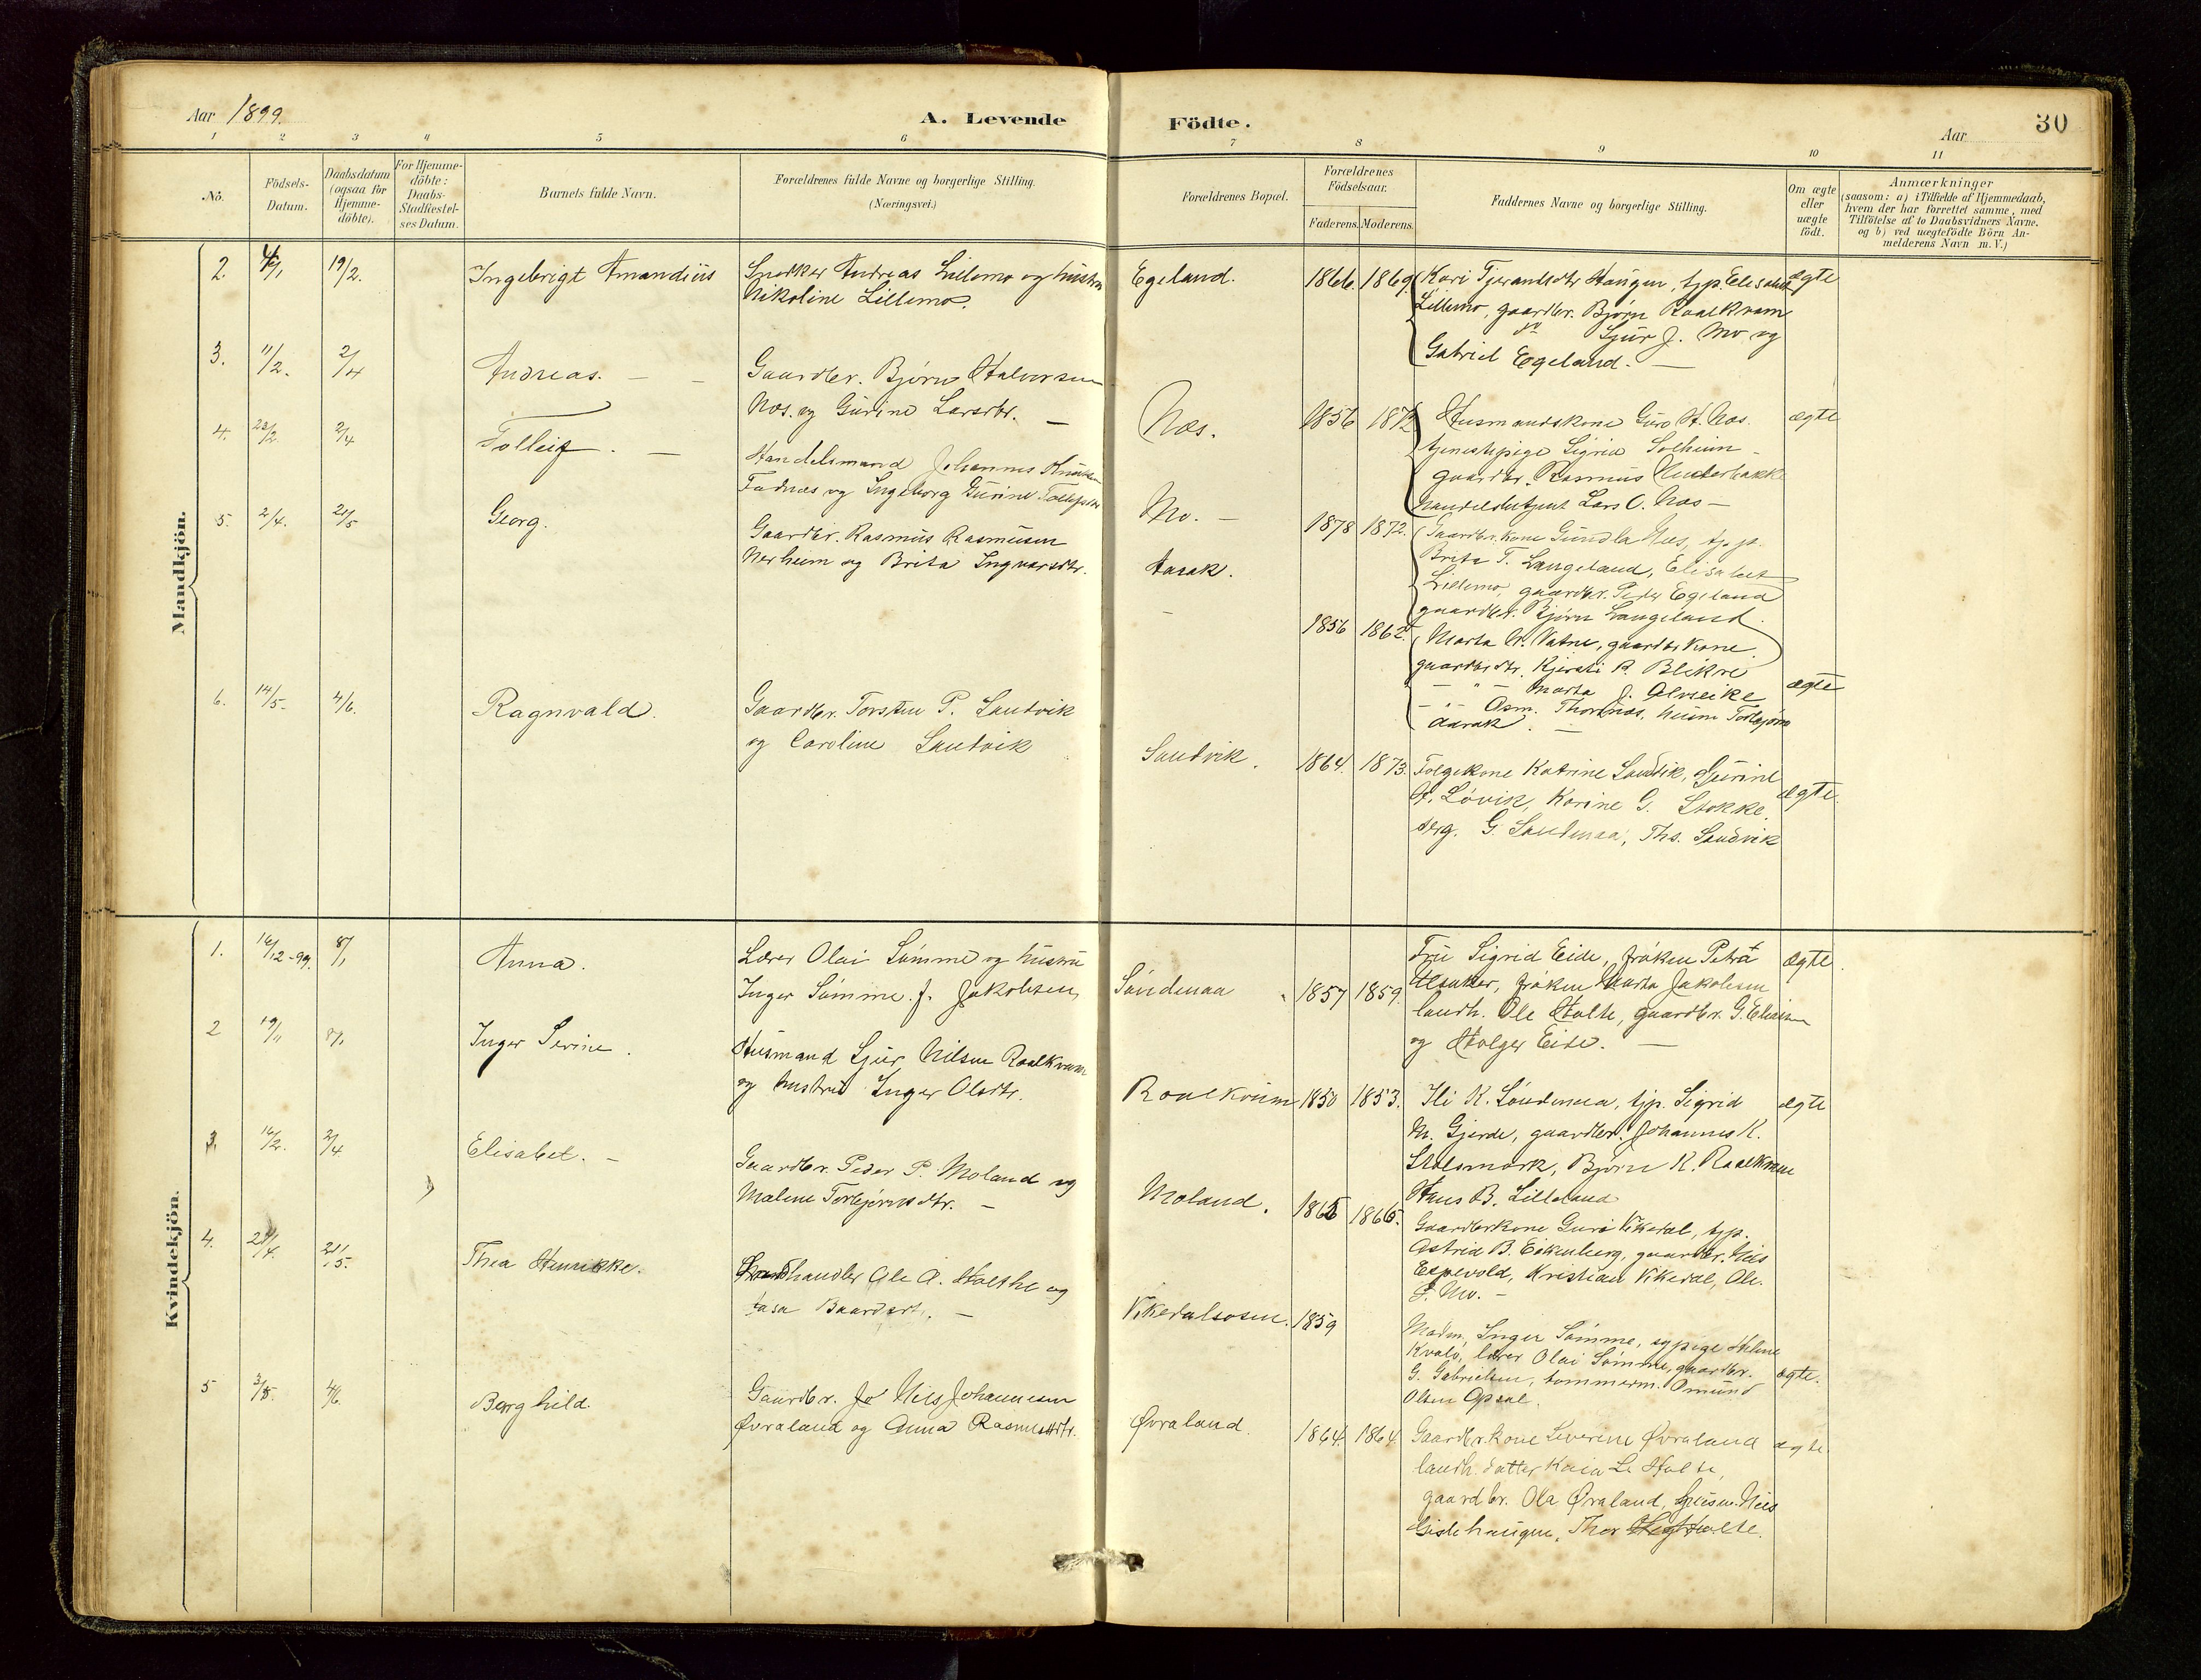 Aar 1899.
A. Levende Födte.
Aar
30
1 2 3 4 5 6 7 8 9 10 11
No.
Födsels-
Datum.
Daabsdatum
(ogsaa for
Hjemme-
döbte).
For Hjemme-
döbte:
Daabs-
Stadfæstel-
ses Datum.
Barnets fulde Navn.
Forældrenes fulde Navne og borgerlige Stilling.
(Næringsvei.)
Forældrenes Bopæl.
Forældrenes
Födselsaar.
Faderens. Moderens.
Faddernes Navne og borgerlige Stilling.
Om ægte
eller
uægte
födt.
Anmærkninger
(saasom: a) i Tilfælde af Hjemmedaab,
hvem der har forrettet samme, med
Tilföielse af to Daabsvidners Navne,
og b) ved uægtefödte Börn An-
melderens Navn m. V.)
Mandkjön.
2. 19/2. Ingebrigt Amandius
Snedker Andreas Lillemo og hustru
Nikoline Lillemo.
Egeland. 1866. 1869
Kari Tjerandsdtr Haugen, tjp. Elisabet
Lillemo, gaardbr. Bjørn Raalkvam
Sjur J. Mo og
Gabriel Egeland. —
ægte
3. 11/2. 2/4 Andreas. — —
Gaardbr. Bjørn Halvorsen
Næs. og Gurine Larsdtr. —
Næs. 1856 1872
Husmandskone Guro H. Næs.
tjenestepige Sigrid Solheim —
gaardbr. Rasmus
Handelsbetjent Lars O. Næs —
ægte
4. 23/2. 2/4 Tolleif. —
Handelsmand Johannes Knudsen
Fadnæs og Ingeborg Gurine Tollefsdtr
Mo. — 1878 1872.
Gaardbr.kone Gundla Næs, tjp.
Brita T. Langeland, Elisabet
Lillemo, gaardbr. Peder Egeland
gaardbr. Bjørn Langeland.
5. 2/4. 21/5 Georg.
Gaardbr. Rasmus Rasmusen
Nerheim og Brita Ingvarsdtr.
Aarak. 1856 1862.
Marta A. Vatne, gaardbr. kone.
gaardbr. dtr. Kjersti R. Blikre
— " — Marta J. Alveike
— " — Asm. Thornæs,
Aarak. —
ægte
6. 14/5. 4/6. Ragnvald.
Gaardbr. Torsten P. Sandvik
og Caroline Sandvik
Sandvik. 1864. 1873.
Folgekone Katrine Sandvik, Gurine
A. Løvik, Karine G. Stokke.
G. Sandmaa, Ths. Sandvik
ægte
Kvindekjön.
1. 16/12-98. 8/1 Anna.
Lærer Olai Sømme og hustru
Inger Sømme f. Jakobsen,
Søndenaa 1857 1859.
Fru Sigrid Eide, frøken Petra
Alsaker, frøken Marta Jakobsen
landh. Ole Holte, gaardbr. G. Eliasen
og Holger Eide. —
ægte
2 19/11 8/1 Inger Serine.
Husmand Sjur Nilsen Raalkvam
og hustru Inger Olsdtr.
Raalkvam 1850 1853.
Ili K. Søndenaa, tjp. Sigrid
M. Gjerde, gaardbr. Johannes K.
Stølsmark, Bjørn K. Raalkvam
Hans B. Lilleland
ægte
3. 16/2. 2/4 Elisabet. —
Gaardbr. Peder P. Moland og
Malene Torbjørnsdtr. —
Moland. 1865 1866.
Gaardbrkone Guri Vikedal, tjp.
Astrid B. Eikenberg, gaardbr. Nils
Espevold, Kristian Vikedal, Ole
S. Mo. —
4. 21/4. 21/5. Thea Henrikke.
Landhandler Ole A. Holthe og
Aasa Baardsdt. —
Vikedalsosen. 1859
Madm. Inger Sømme, sypige Helene
Kvalø, lærer Olai Sømme, gaardbr.
G. Gabrielsen, tømmerm. Omund
Olsen Opsal.
ægte.
5 3/5. 4/6. Borghild.
Gaardbr. Nils Johannesen
Øvraland og Anna Rasmusdtr.
Øvraland. 1864. 1864
Gaardbr.kone Severine Øvraland
landh. datter Kaia L. Holte,
gaardbr. Ola Øvraland, husm. Nils
Eidehaugen, Thor Holte.
ægte